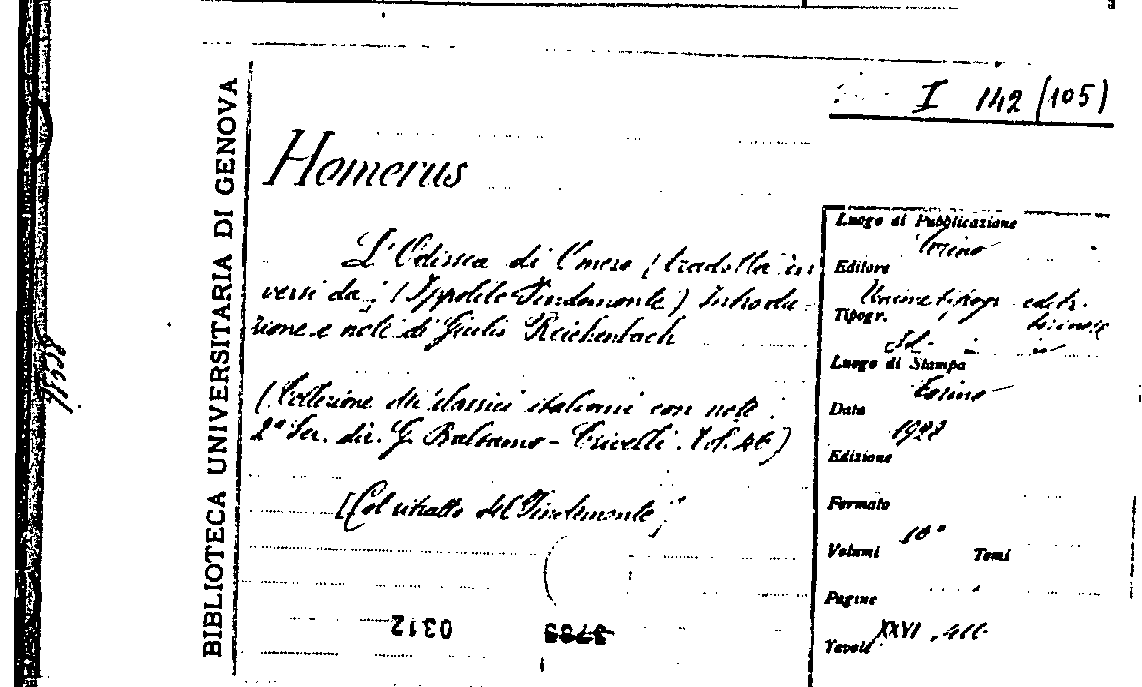 I 142 (105)
BIBLIOTECA UNIVERSITARIA DI GENOVA
Homerus
L'Odissea di Omero (tradotta in
versi da (Ippolito Pindemonte) Introdu-
zione e note di Giulio Reichenbach
(Collezione di classici italiani con note
2ª Ser. dir. G. Balsamo-Crivelli. Vol. 46)
[Col ritratto del Pindemonte]
0312
3783
Luogo di Pubblicazione
Torino
Editore
Unione tipogr. editr.
Tipogr.
Id.
Luogo di Stampa
Torino
Data
1928
Edizione
Formato
16°
Volumi Tomi
Pagine
XXVI,
Tavole